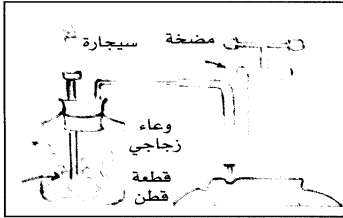 مضخة
سيجارة
وعاء
زجاجي
قطعة
قطن